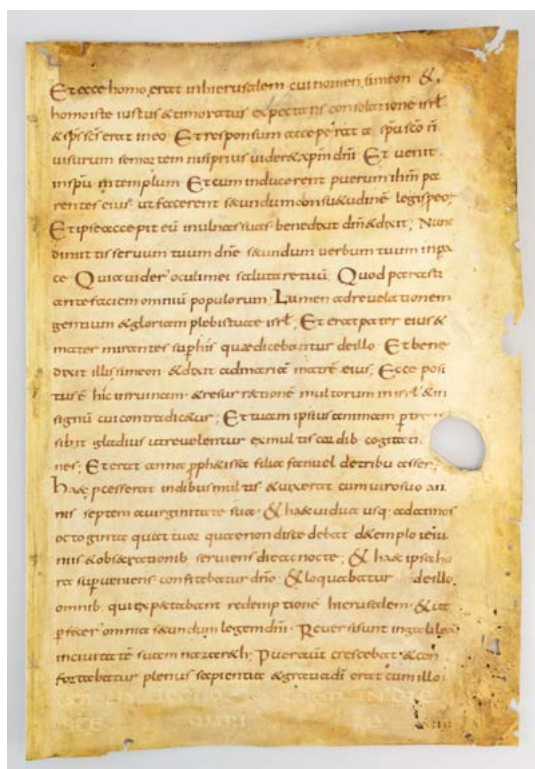 Et ecce homo erat inhierusalem cui nomen simeon &
homo iste iustus & timoratus expectans consolatione isrl
& sps scs erat ineo Et responsum acceperat a spu sco n
visurum se mortem nisi prius vider& xpm dni Et venit
inspu intemplum Et cum inducerent puerum ihm pa
rentes eius ut facerent secundum consu&udine legis peo;
Et ipse accepit eu inulnas suas benedixit dm & dixit; Nunc
dimittis servum tuum dne secundum verbum tuum inpa
ce Quia vider oculi mei salutare tuu; Quod parasti
ante faciem omniu populorum Lumen adrevelationem
gentium & gloriam plebis tuae isrl; Et erat pater eius &
mater mirantes sup his quae dicebantur deillo Et bene
dixit illis simeon & dixit admaria matre eius; Ecce posi
tus e hic inruinam & resurrectione multorum inisrl & in
signu cui contradic&ur; Et tuam ipsius animam p
sibit gladius ut revelentur exmultis cordib cogitati
nes; Et erat anna pph&issa filia fanuel detribu asser;
haec pcesserat indibus multis & vixerat cum viro suo an
nis septem avirginitate sua & haec vidua usq adannos
octoginta quattuor quae non discedebat detemplo ieiu
niis & obsecrationib serviens die ac nocte; & haec ipsa ho
ra supveniens confitebatur dno & loquebatur deillo
omnib qui expectabant redemptione hierusalem & ut
pfecer omnia secundum legem dni Reversi sunt ingalilea
incivitate suam nazareth; Puer aut crescebat & con
fortabatur plenus sapientia & gratia di erat cum illo